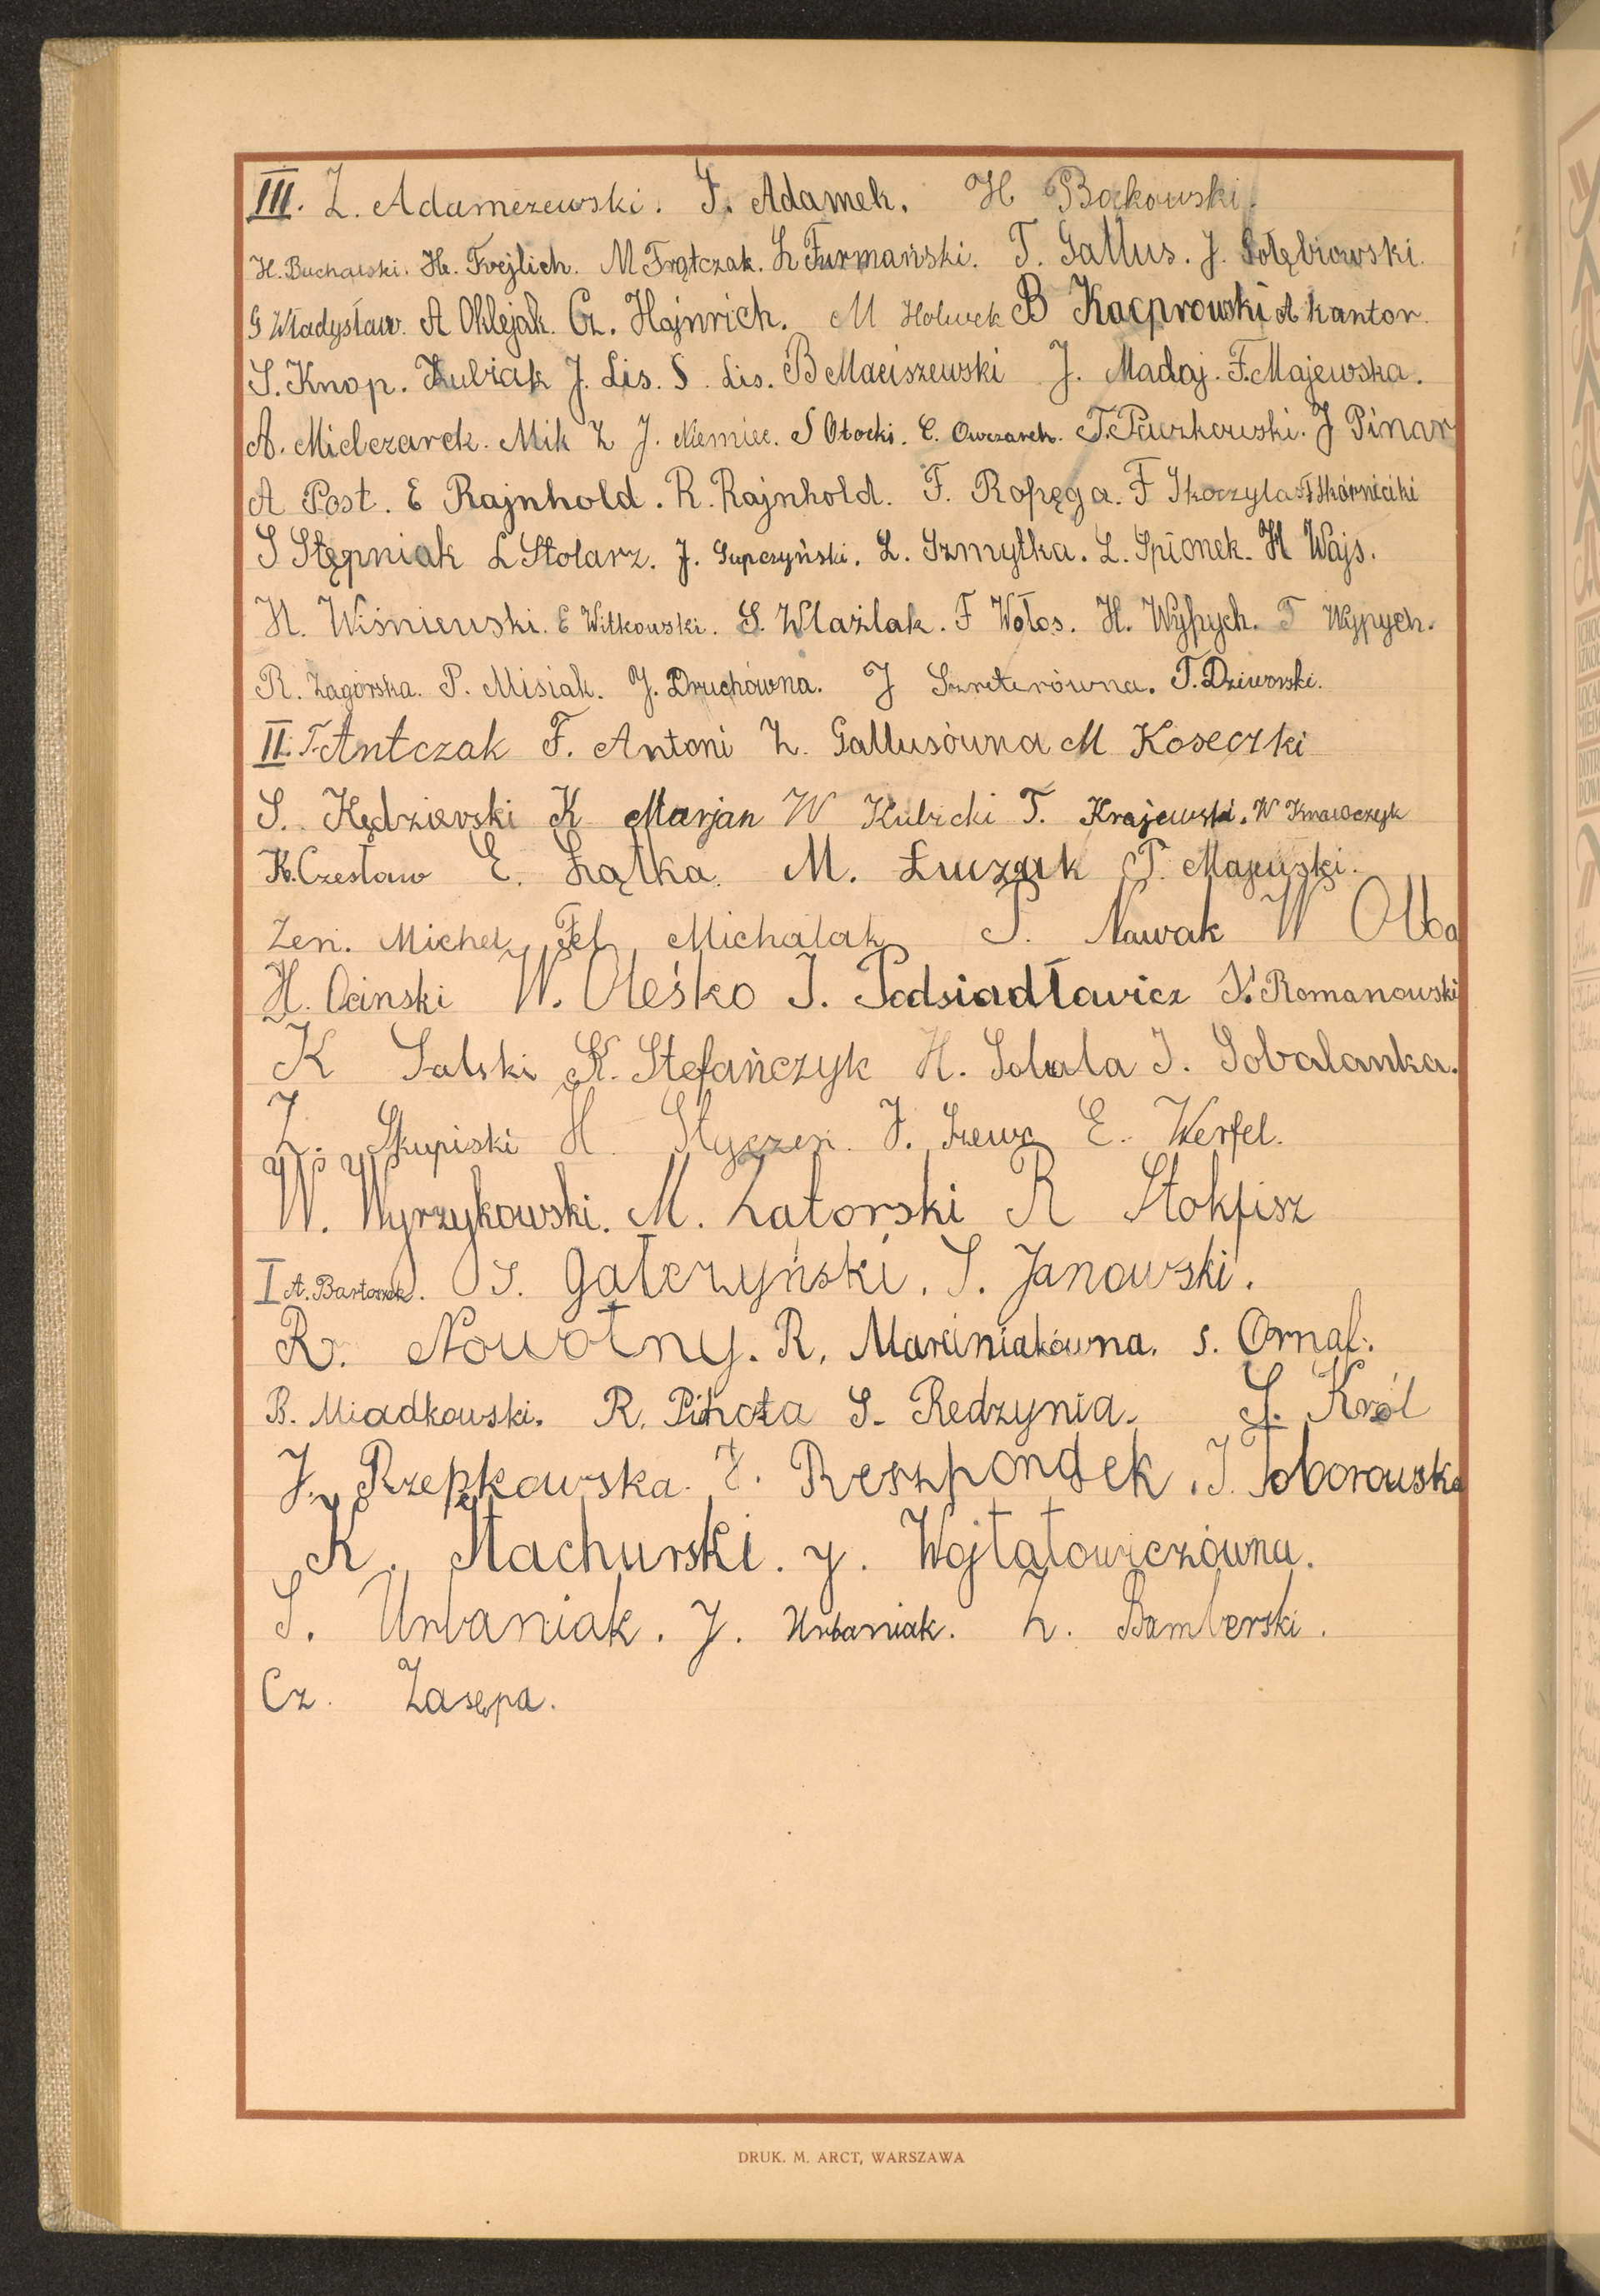 III. Z. Adamczewski. F. Adamek. H Bąkowski.
H. Buchalski. He. Frejlich. M Frątczak. Z Furmański. T. Gallus. J. Gołębiowski.
G Władysław. A Oklejak. Cz. Hajnrich. M Holwek B Kacprowski A kantor.
S. Knop. Kubiak J. Lis. S. Lis. B Maciszewski J. Madaj. F. Majewska.
A. Mielczarek. Mik Z J. Niemiec. S Otocki. C. Owczarek. T. Paczkowski. J Pinar
A Post. E Rajnhold. R. Rajnhold. F. Ropęga. F Skoczylas T Skórnicki
S Stępniak L Stolarz. J. Supczyński. L. Szmytka. L. Spionek. H Wajs.
H. Wiśniewski. E Witkowski. S. Wlaźlak. F Wołos. H. Wypych. T Wypych.
R. Zagórska. P. Misiak. J. Druchówna. J Szreterówna. T. Dziworski.
II. T. Antczak F. Antoni Z. Gallusówna M Koseczki
S. Kędzierski K Marjan W Kubicki T. Krajewski. W Krawczyk
K. Czesław E. Łątka. M. Łuczak P. Majewski.
Zen. Michel Fel Michalak P. Nowak W Olba
H. Ociński W. Oleśko J. Podsiadłowicz K. Romanowski
K Salski K. Stefańczyk H. Sobala J. Sobalanka.
Z. Skupiski H Styczeń. J. Szewc E. Werfel.
W. Wyrzykowski. M. Zatorski R Stokfisz
I A. Bartosek. S. Gałczyński. S. Janowski.
R. Nowotny. R. Marciniakówna. S. Ornaf.
B. Miadkowski. R. Pihota S. Redzynia. S. Król
J. Rzepkowska. J. Reszpondek. J. Toborowska
K. Stachurski. J. Wojtatowiczówna.
S. Urbaniak. J. Urbaniak. Z. Bamberski.
Cz. Zasępa.
DRUK. M. ARCT, WARSZAWA